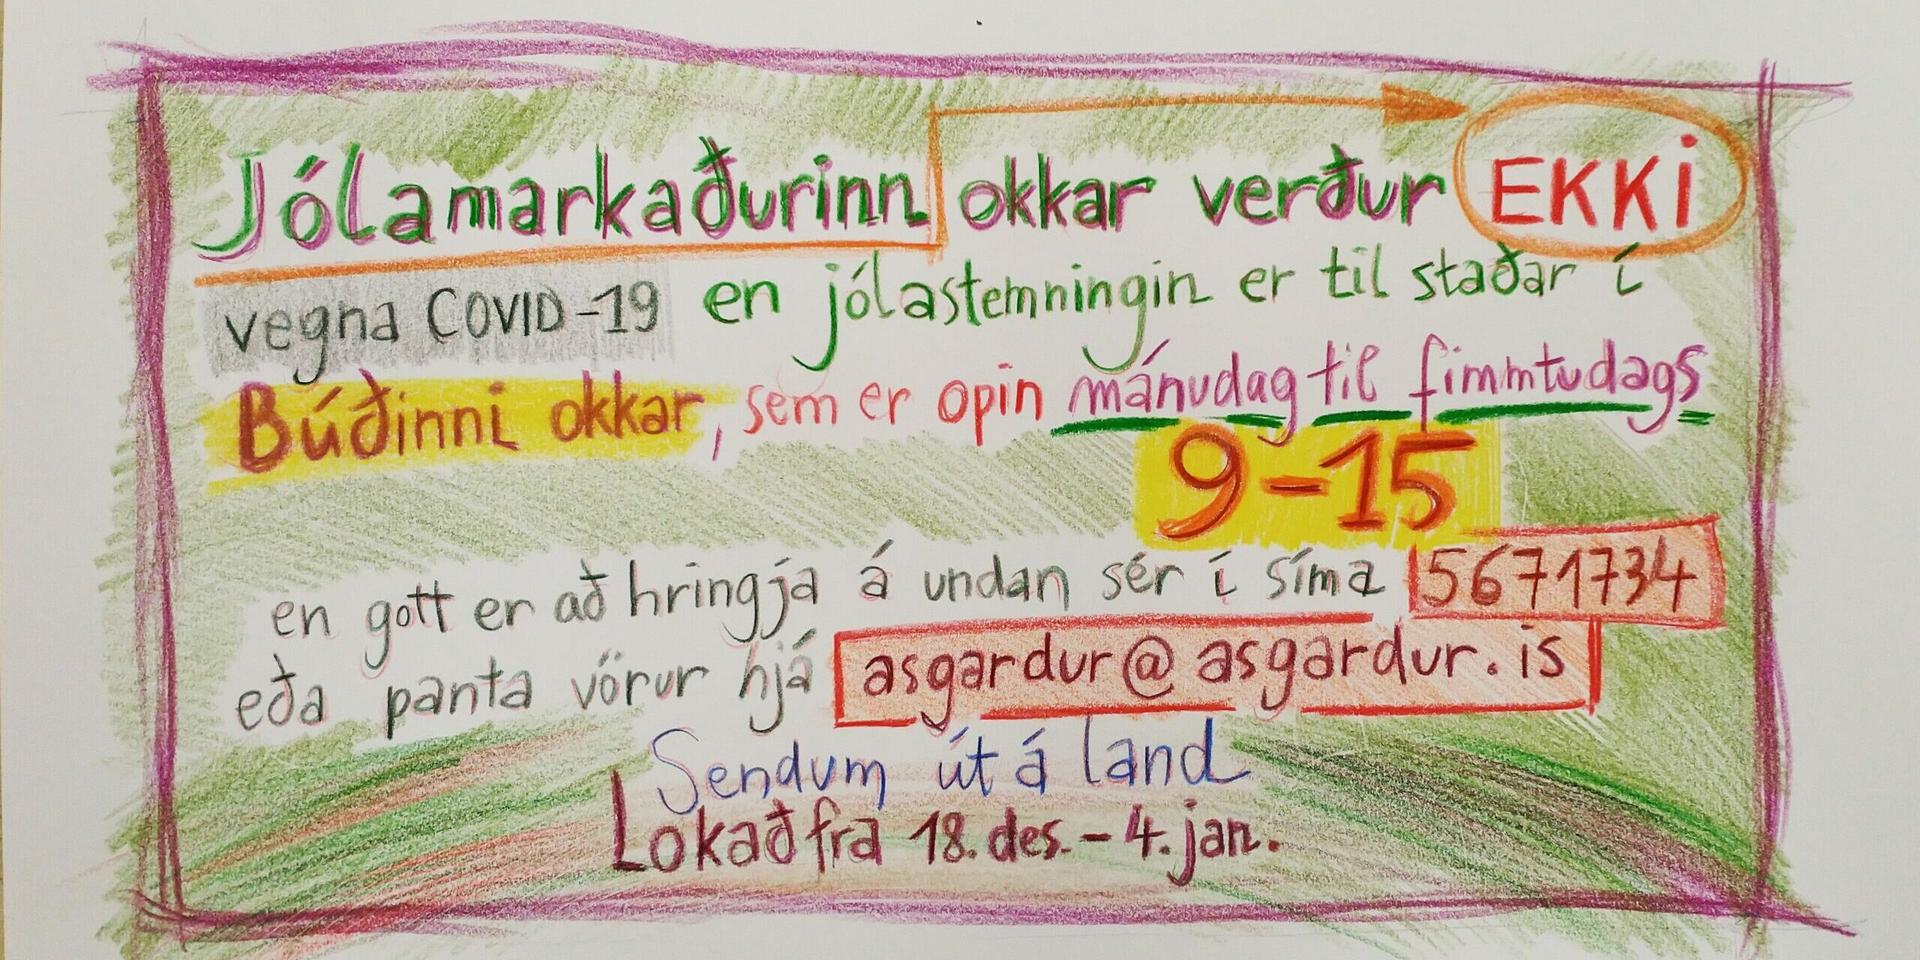 Jólamarkaðurinn okkar verður EKKi
vegna COVID-19 en jólastemningin er til staðar í
Búðinni okkar, sem er opin mánudag til fimmtudags
9-15
en gott er að hringja á undan sér í síma 5671734
eða panta vörur hjá asgardur@asgardur.is
Sendum út á land
Lokað fra 18. des. - 4. jan.